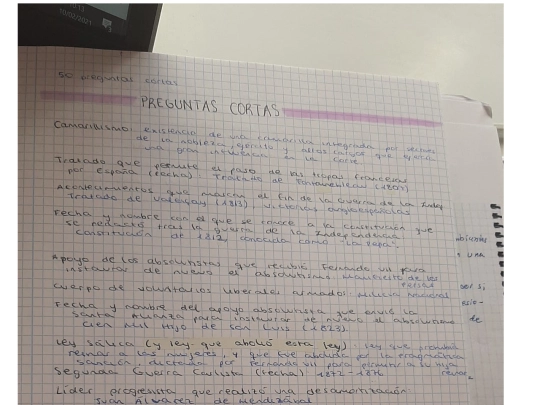 10/02/2021
50 preguntas cortas
PREGUNTAS CORTAS
Camarilismo: existencia de una camarilla integrada por
de la nobleza, y altos cargos que
una gran influencia en la Corte
Tratado que permite el paso de las tropas francesas
por España (fecha) Tratado de Fontainebleau (1807)
Acontecimientos que marcan el fin de la Guerra de la Indep
Tratado de Valençay (1813) victorias angloespañolas
Fecha y nombre con el que se conoce a la constitución que
se redactó tras la guerra de la Independencia
Constitución de 1812, conocida como "La Pepa".
Apoyo de los absolutistas que recibió Fernando VII para
instaurar de nuevo el absolutismo. Manifiesto de los
Persas
Cuerpo de voluntarios liberales armados: Milicia Nacional
Fecha y nombre del apoyo absolutista que envió la
Santa Alianza para instaurar de nuevo el absolutismo
Cien mil hijos de San Luis (1823).
Ley Sálica (y ley que abolió esta ley): ley que prohibía
reinar a las mujeres, y que fue abolida por la Pragmática
Sanción dictada por Fernando VII para permitir a su hija
reinar
Segunda Guerra Carlista (fecha): 1872-1876
Líder progresista que realizó una desamortización
Juan Álvarez de Mendizábal